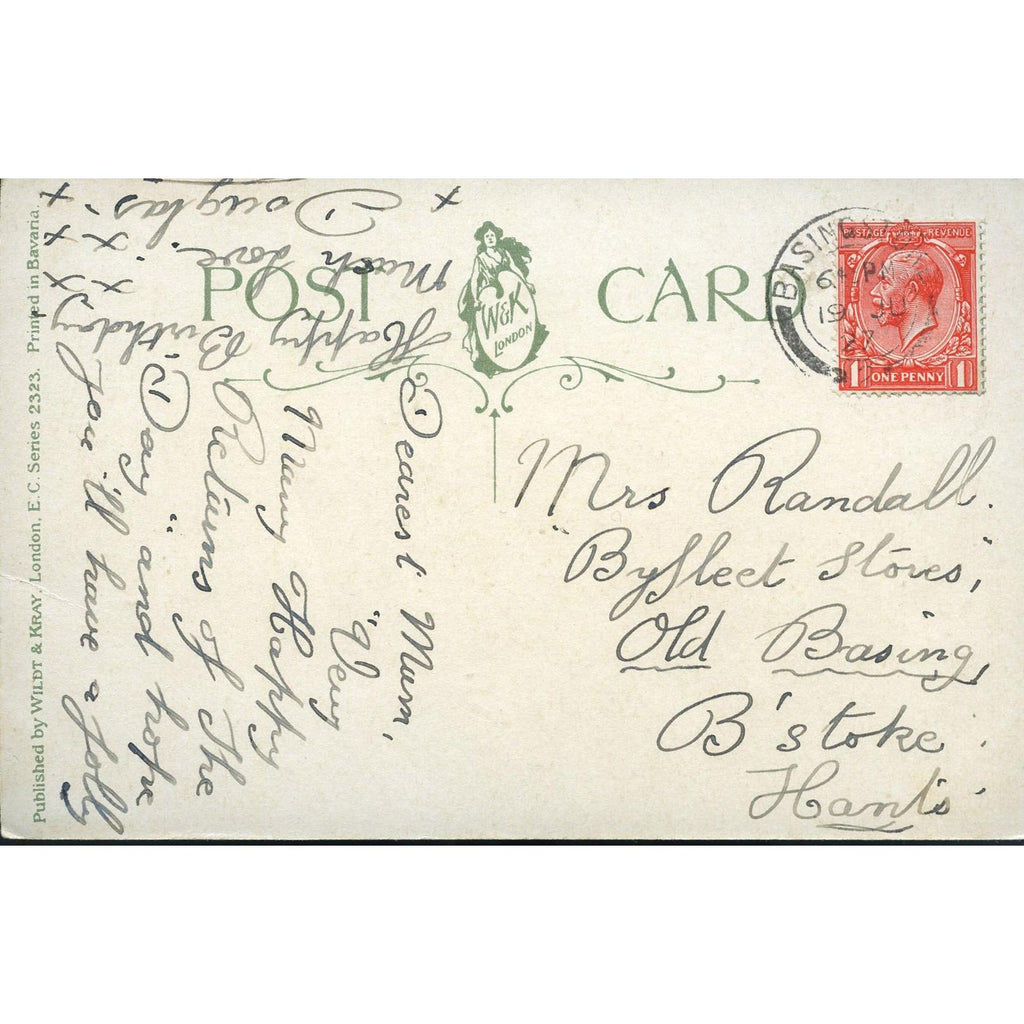 POST CARD
W&K
LONDON
Published by WILDT & KRAY, London, E.C. Series 2323. Printed in Bavaria.
POSTAGE REVENUE
ONE PENNY
1 1
BASING
PM
19 JU
Dearest Mum,
Very
Many Happy
Returns of The
"Day" and hope
You'll have a Jolly
Happy Birthday
Much Love.
Douglas.
x x x x x x
Mrs Randall.
"Byfleet Stores,"
Old Basing,
B'stoke.
Hants